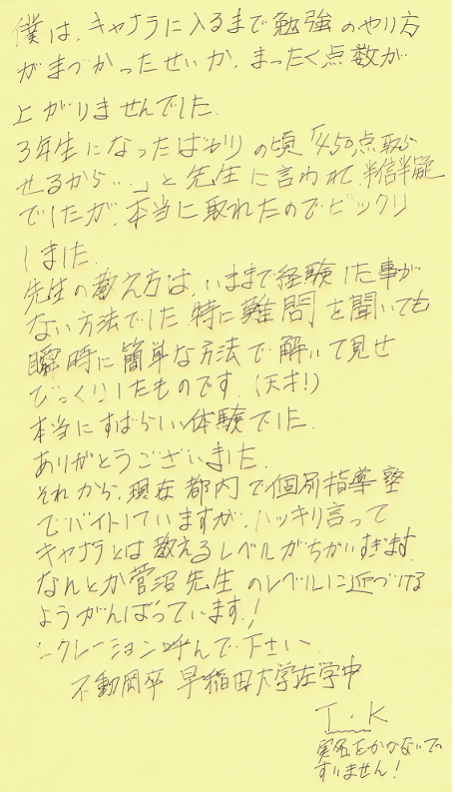 僕は、キャナラに入るまで勉強のやり方
がまづかったせいか、まったく点数が
上がりませんでした。
3年生になったばかりの頃「450点取ら
せるから…」と先生に言われて、半信半疑
でしたが、本当に取れたのでビックリ
しました。
先生の教え方は、いままで経験した事が
ない方法でした。特に難問を聞いても
瞬時に簡単な方法で解いて見せ
びっくりしたものです。(天才!)
本当にすばらしい体験でした。
ありがとうございました。
それから、現在都内で個別指導塾
でバイトしていますが、ハッキリ言って
キャナラとは教えるレベルがちがいすぎます。
なんとか菅沼先生のレベルに近づける
ようがんばっています!
クレーション呼んで下さい。
不動岡卒 早稲田大学在学中
T・K
実名をかかないで
すいません!